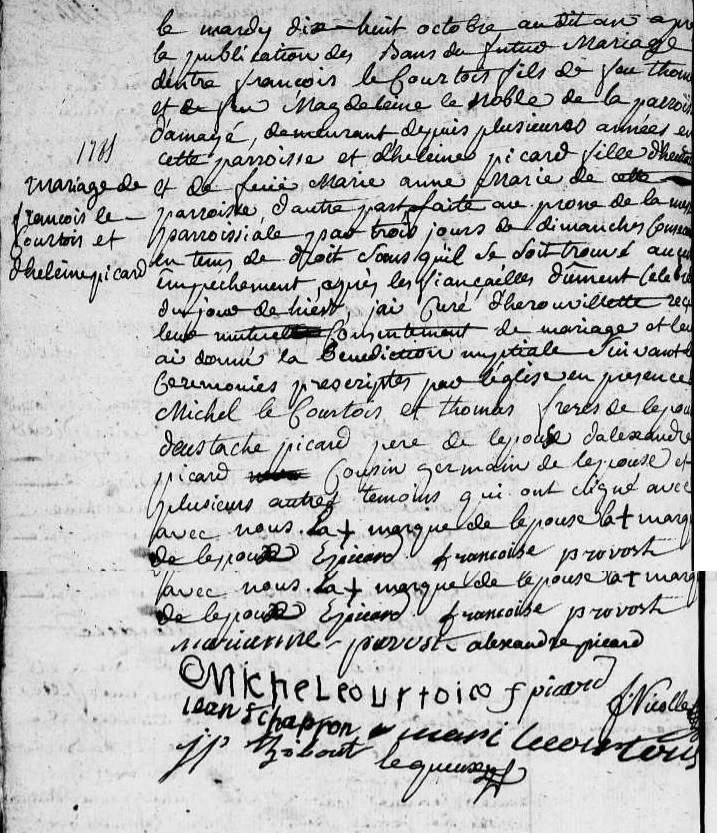 le mardy dix-huit octobre audit an apre
la publication des Bans du futur Mariage
d'entre françois le Courtois fils de feu thom
et de feu Magdeleine le Noble de la parroiss
d'amayé, demeurant depuis plusieurs années en
cette parroisse et d'heleine picard fille d'heusta
et de feüe Marie anne Marie de cette
parroisse, d'autre part faite au prone de la mess
parroissiale par trois jours de dimanches Consec
en tems de droit sans qu'il se soit trouvé aucun
impechement, après les fiançailles dûment Celebré
du jour de hier, j'ai Curé d'herouvillette reçu
leur mutuel Consentement de mariage et leu
ai donné la Benediction nuptiale suivant l
Ceremonies prescriptes par l'église en presence
Michel le Courtois et thomas freres de lepou
d'eustache picard pere de lepouse d'alexandre
picard Cousin germain de lepouse et
plusieurs autres temoins qui ont signé avec
avec nous. La + marque de lepouse la + marq
de lepoux Epicard francoise provost
1785
mariage de
françois le
Courtois et
d'heleine picard
avec nous. La + marque de lepouse la + marq
de lepoux Epicard francoise provost
marianne provost alexandre picard
Michel courtois f picard
f Nicolle
jean f chapron
mari lecourtois
jp thobout lequeux